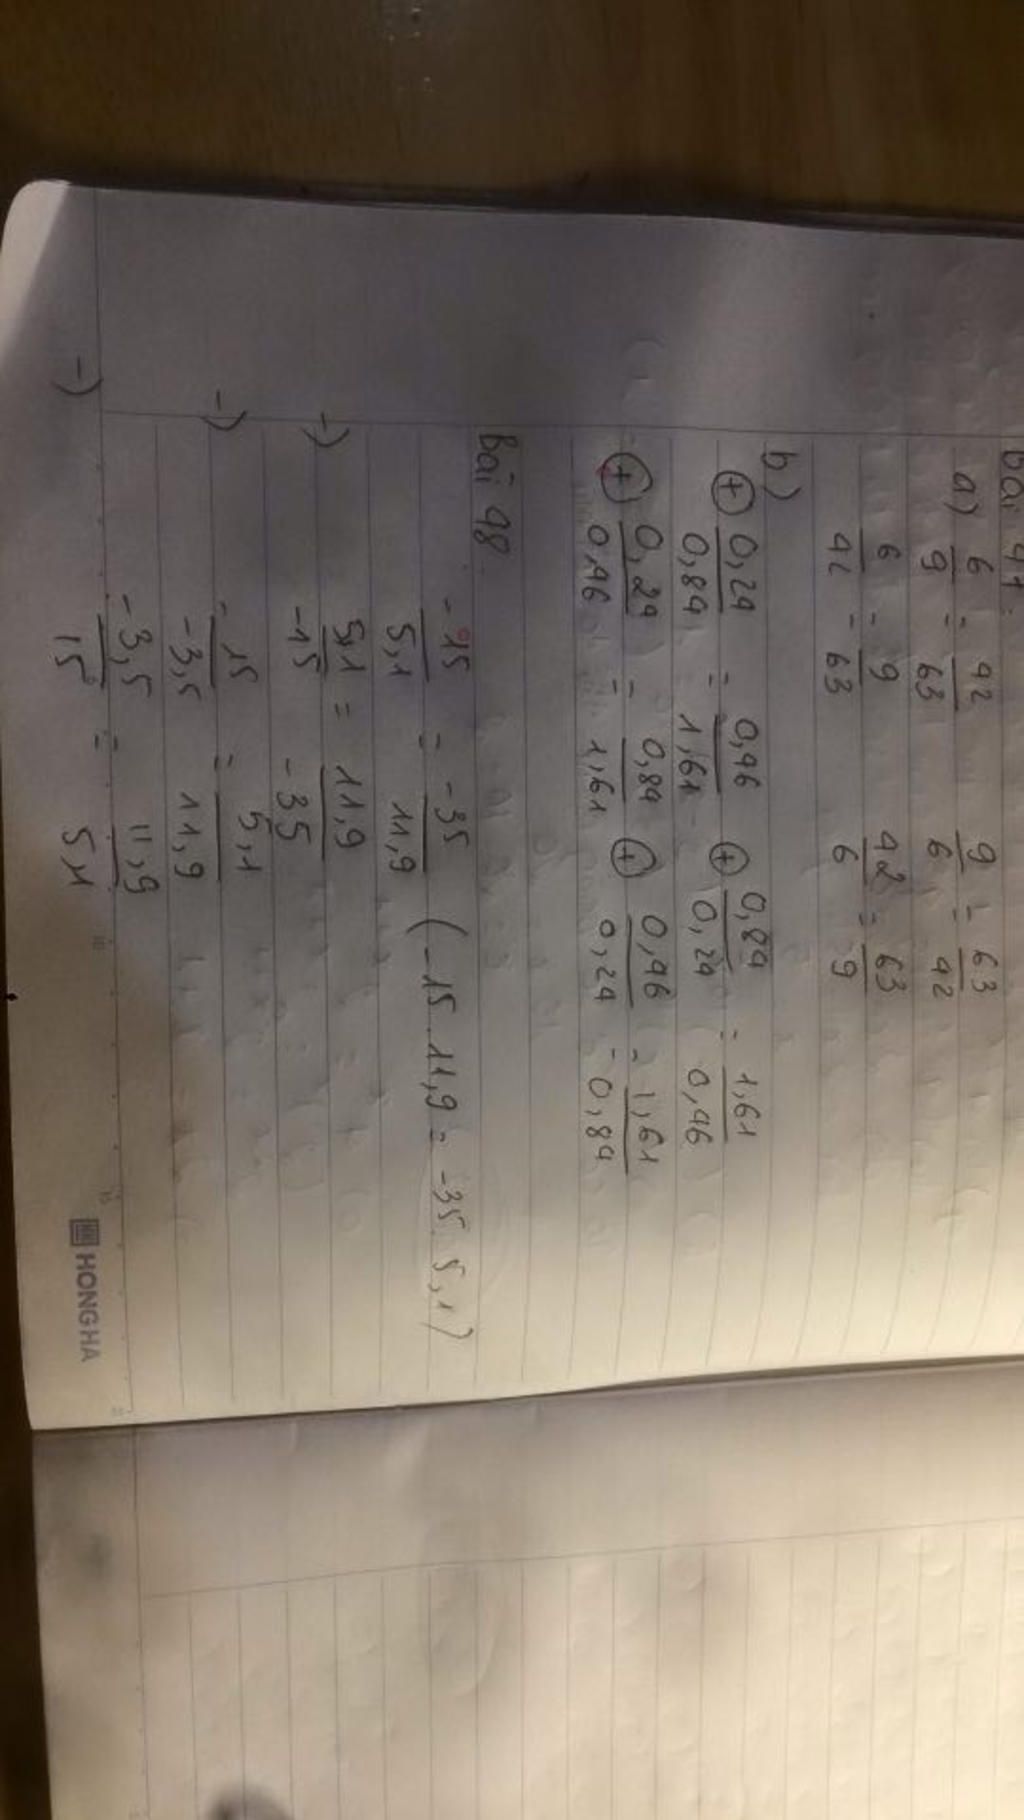 Bài 47:
a) 6/9 = 42/63   9/6 = 63/42
6/42 = 9/63   42/6 = 63/9
b)
⊕ 0,24/0,84 = 0,46/1,61   ⊕ 0,84/0,24 = 1,61/0,46
⊕ 0,24/0,46 = 0,84/1,61   ⊕ 0,46/0,24 = 1,61/0,84
Bài 48.
-15/5,1 = -35/11,9 (-15.11,9 = -35.5,1)
-) 5,1/-15 = 11,9/-35
-) -15/-3,5 = 5,1/11,9
-) -3,5/15 = 11,9/5,1
HONG HA